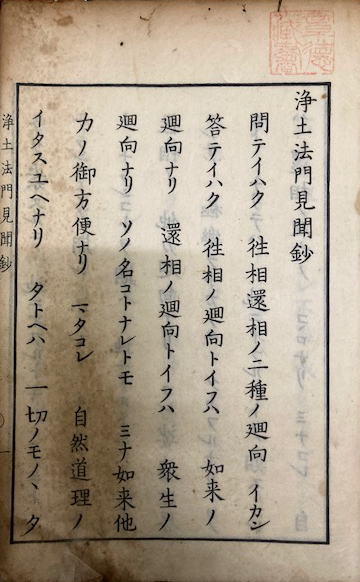 浄土法門見聞鈔
問テイハク 徃相還相ノ二種ノ廻向 イカン
答テイハク 徃相ノ廻向トイフハ 如来ノ
廻向ナリ 還相ノ廻向トイフハ 衆生ノ
廻向ナリ ソノ名コトナレトモ ミナ如来他
力ノ御方便ナリ 一、タコレ 自然道理ノ
イタスユヘナリ タトヘハ 一切ノモノヽ タ
浄土法門見聞鈔